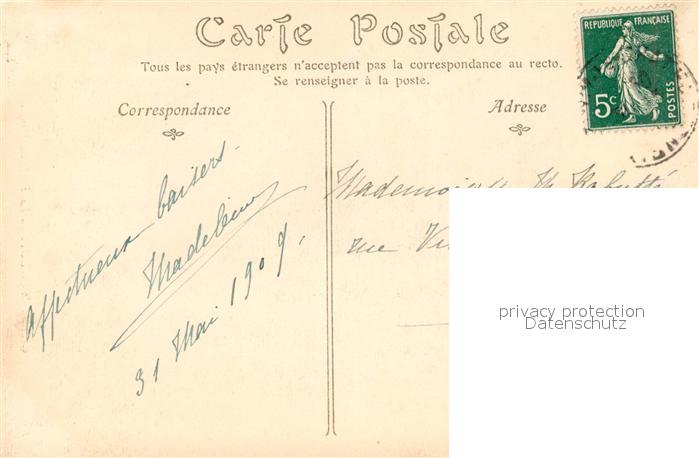 Carte Postale
Tous les pays étrangers n'acceptent pas la correspondance au recto.
Se renseigner à la poste.
REPUBLIQUE FRANÇAISE
5c
POSTES
Correspondance
Adresse
Affectueux baisers.
Madeleine
31 Mai 1909.
Mademoiselle
rue
privacy protection
Datenschutz